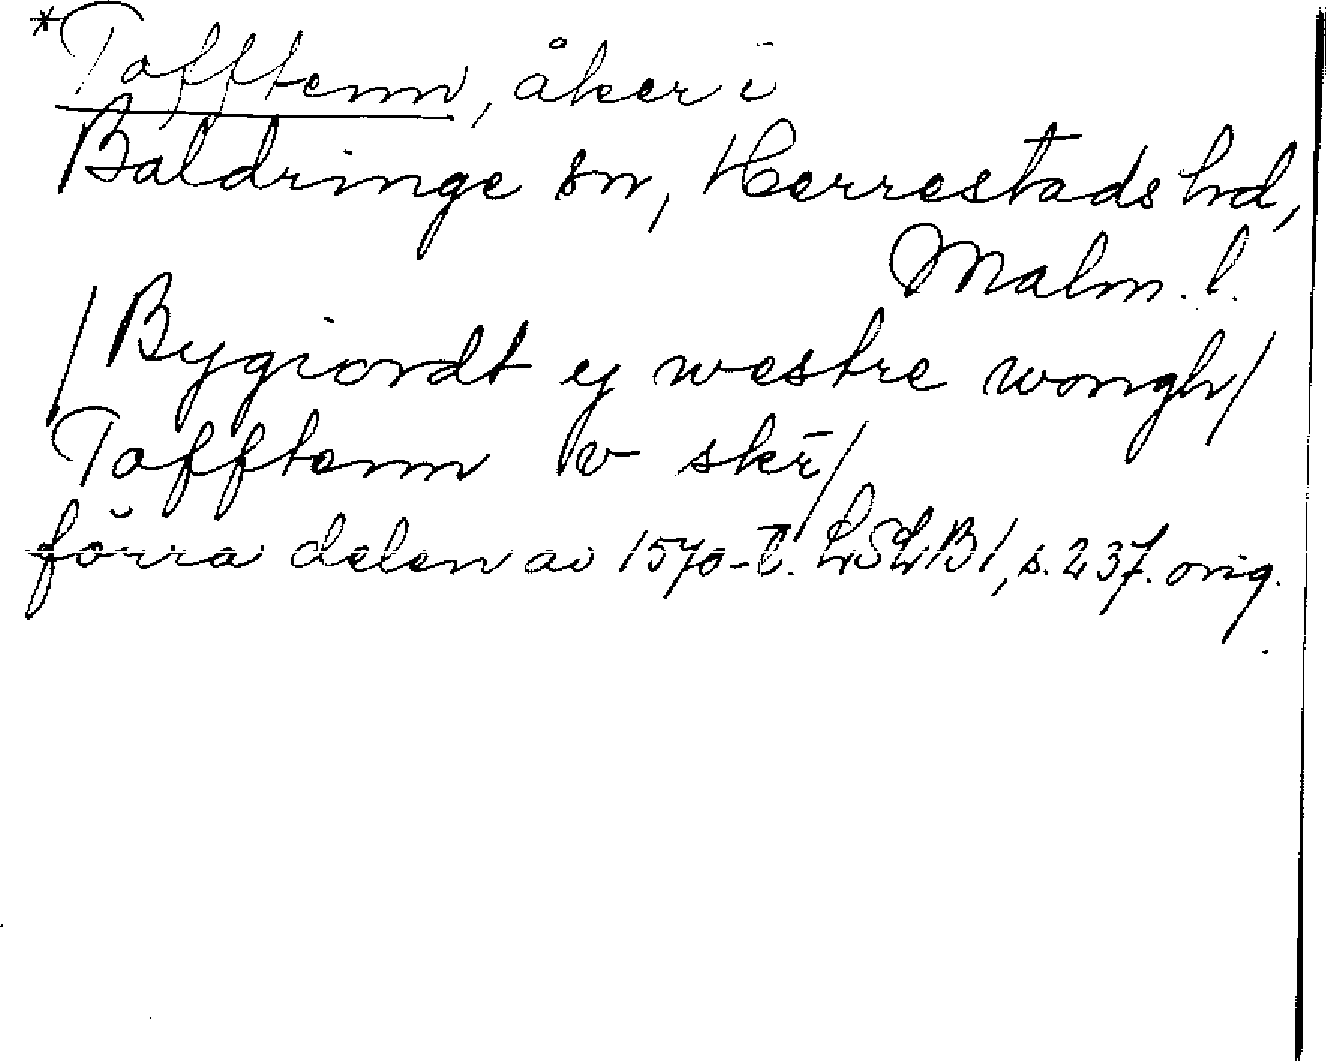 *Tofftenn, åker i
Baldringe sn, Herrestads hd,
Malm. l.
/Bygiordt ey westre wongh/
Tofftenn v skr̄/
förra delen av 1570-t. LSLB1, s. 237. orig.